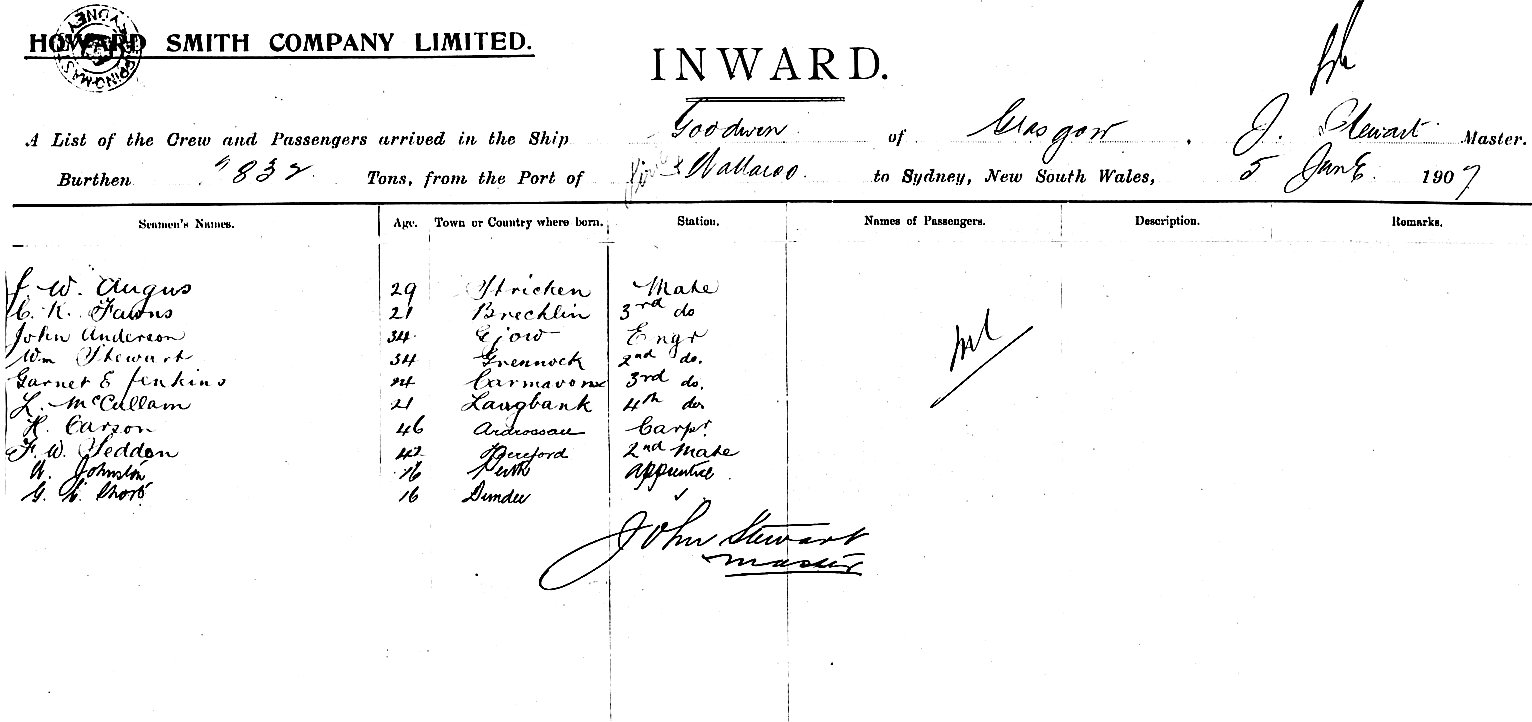 HOWARD SMITH COMPANY LIMITED.
INWARD.
A List of the Crew and Passengers arrived in the Ship Goodwin of Glasgow, J. Stewart Master.
Burthen 2832 Tons, from the Port of & Wallaroo to Sydney, New South Wales, 5 June 1907
Seamen's Names. Age. Town or Country where born. Station. Names of Passengers. Description. Remarks.
J. W. Angus 29 Strichen Mate
C. K. Fawns 21 Brechlin 3rd do
John Anderson 34 Engr
Wm Stewart 34 Grennock 2nd do.
Garnet E Jenkins 24 3rd do.
L. McCullam 21 Langbank 4th do
H. Carson 46 Ardrossan Carpr
F. W. Seddon 42 Hereford 2nd Mate
A. Johnston 16 Perth Apprentice
G. 16 Dundee
nil
John Stewart
master